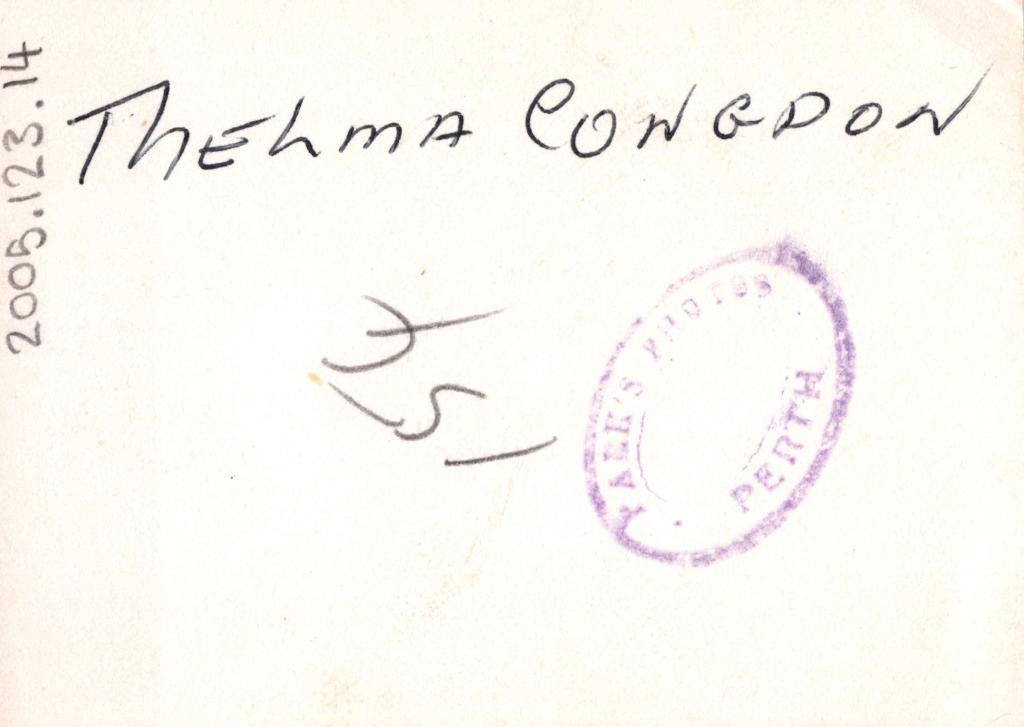 2005.123.14
THELMA CONGDON
PHOTOS
PERTH